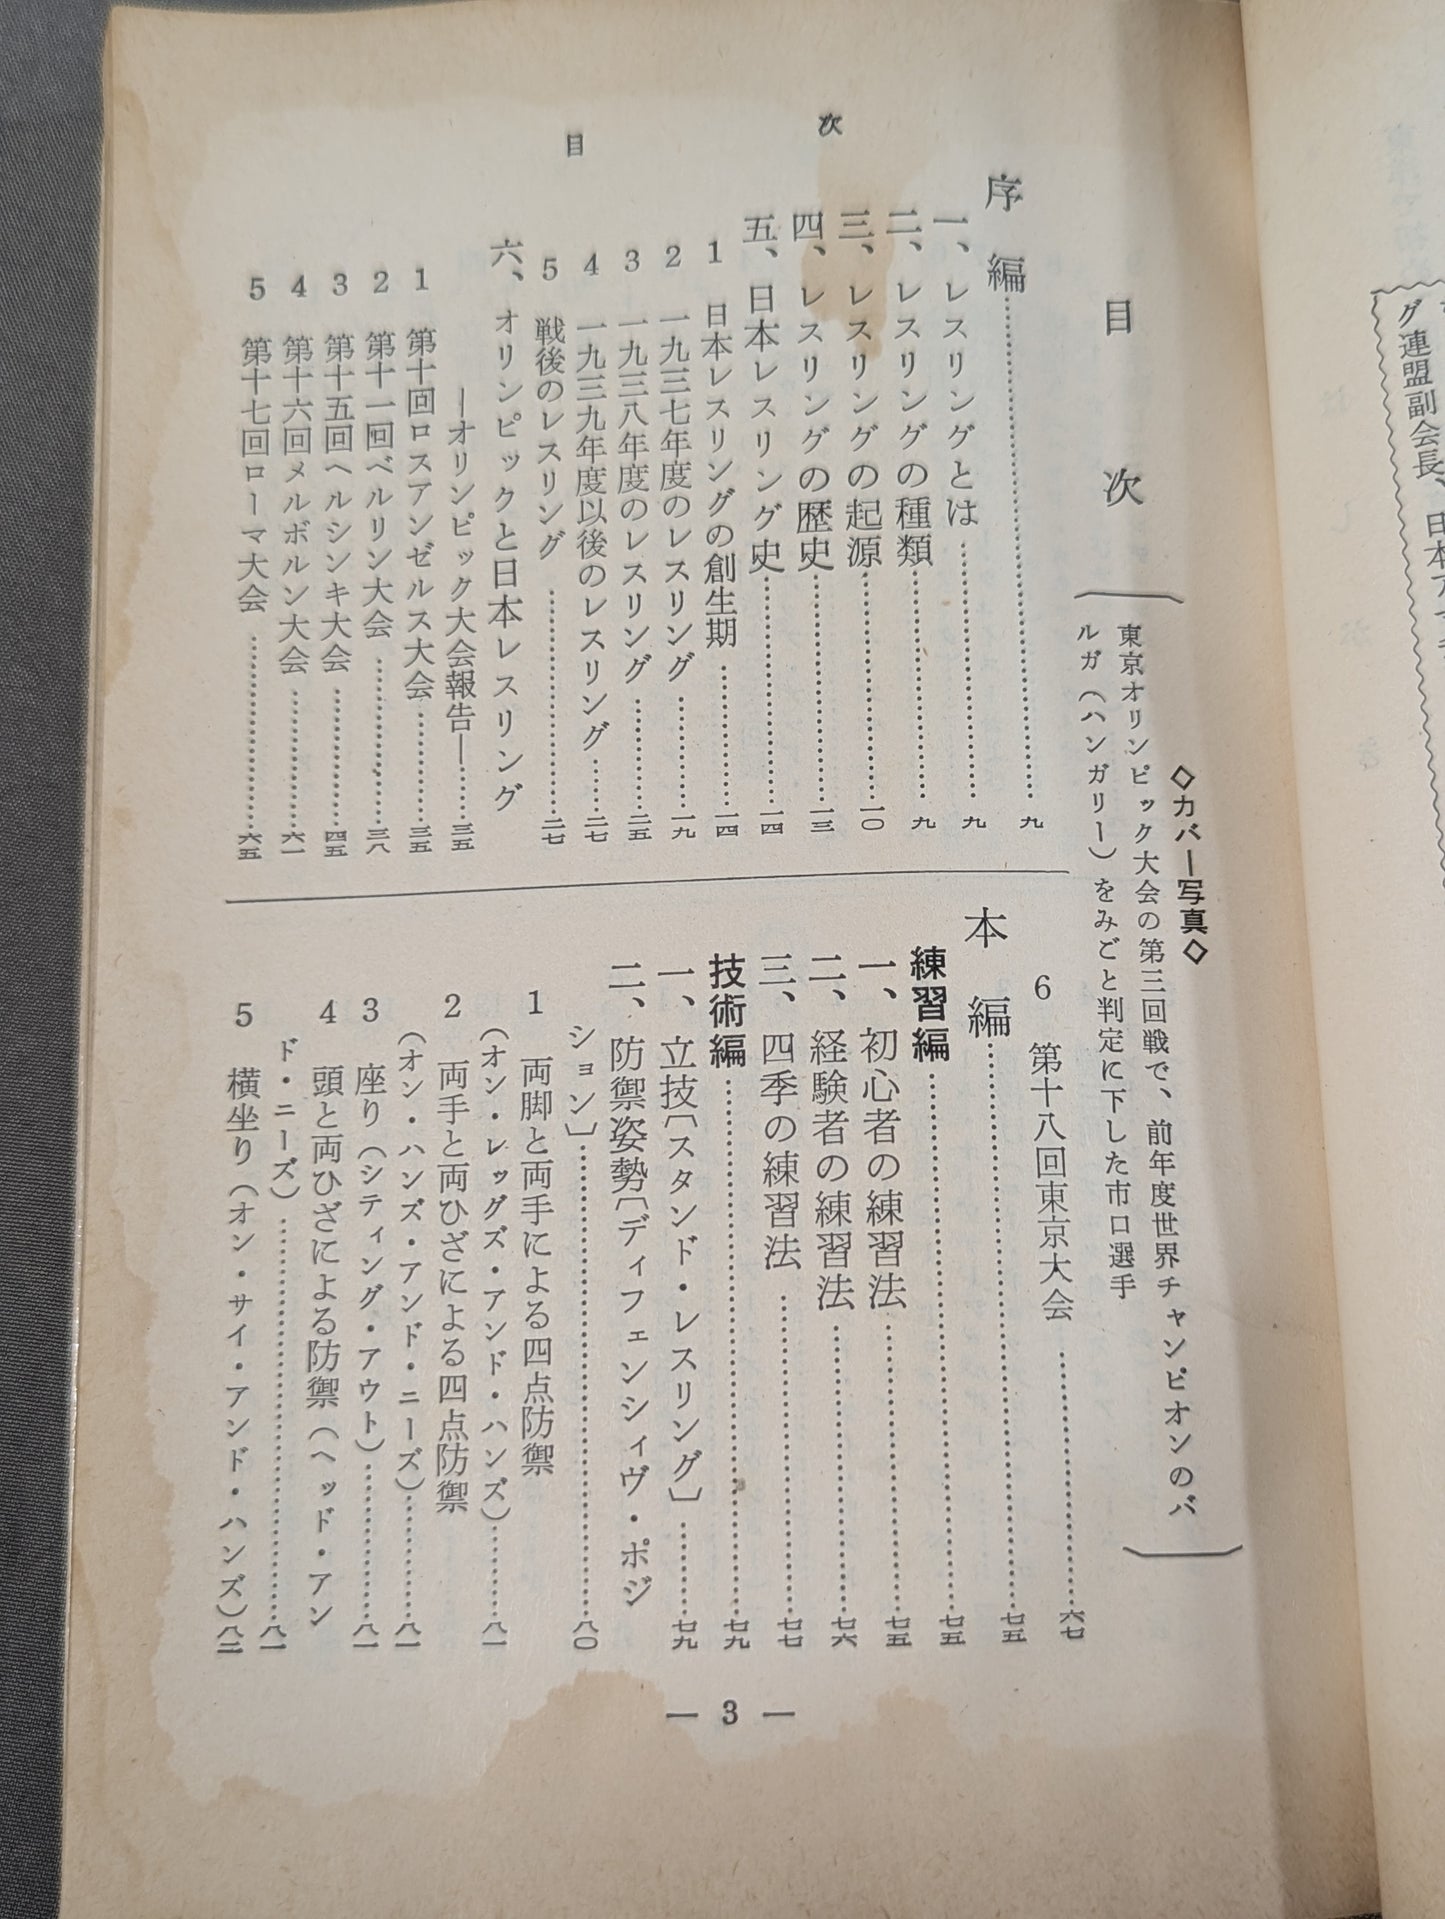 グ連盟副会長、日本アマチ
目次
◇カバー写真◇
東京オリンピック大会の第三回戦で、前年度世界チャンピオンのバ
ルガ（ハンガリー）をみごと判定に下した市口選手
序編……九
一、レスリングとは……九
二、レスリングの種類……九
三、レスリングの起源……一〇
四、レスリングの歴史……一三
五、日本レスリング史……一四
1 日本レスリングの創生期……一四
2 一九三七年度のレスリング……一九
3 一九三八年度のレスリング……二五
4 一九三九年度以後のレスリング……二七
5 戦後のレスリング……二七
六、オリンピックと日本レスリング
―オリンピック大会報告―……三五
1 第十回ロスアンゼルス大会……三五
2 第十一回ベルリン大会……三八
3 第十五回ヘルシンキ大会……四五
4 第十六回メルボルン大会……六一
5 第十七回ローマ大会……六五
6 第十八回東京大会……六七
本編……七五
練習編……七五
一、初心者の練習法……七五
二、経験者の練習法……七六
三、四季の練習法……七七
技術編……七九
一、立技〔スタンド・レスリング〕……七九
二、防禦姿勢〔ディフェンシィヴ・ポジ
ション〕……八〇
1 両脚と両手による四点防禦
（オン・レッグズ・アンド・ハンズ）……八一
2 両手と両ひざによる四点防禦
（オン・ハンズ・アンド・ニーズ）……八一
3 座り（シティング・アウト）……八一
4 頭と両ひざによる防禦（ヘッド・アン
ド・ニーズ）……八一
5 横坐り（オン・サイ・アンド・ハンズ）八二
目次
― 3 ―